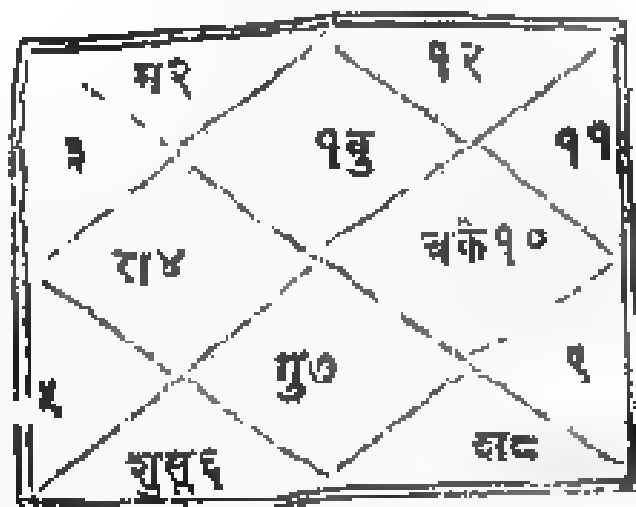 म२
१२
३
१बु
११
रा४
चके१०
५
गु७
९
शुसू६
श८